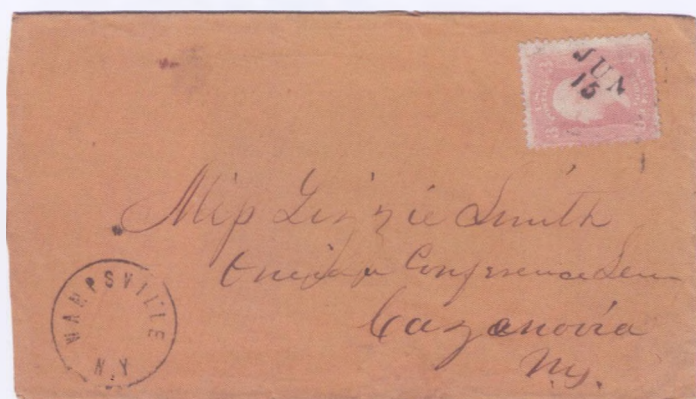 JUN
15
Miss Lizzie Smith
Oneida Conference Sem
Cazenovia
Ny.
WAMPSVILLE
N.Y